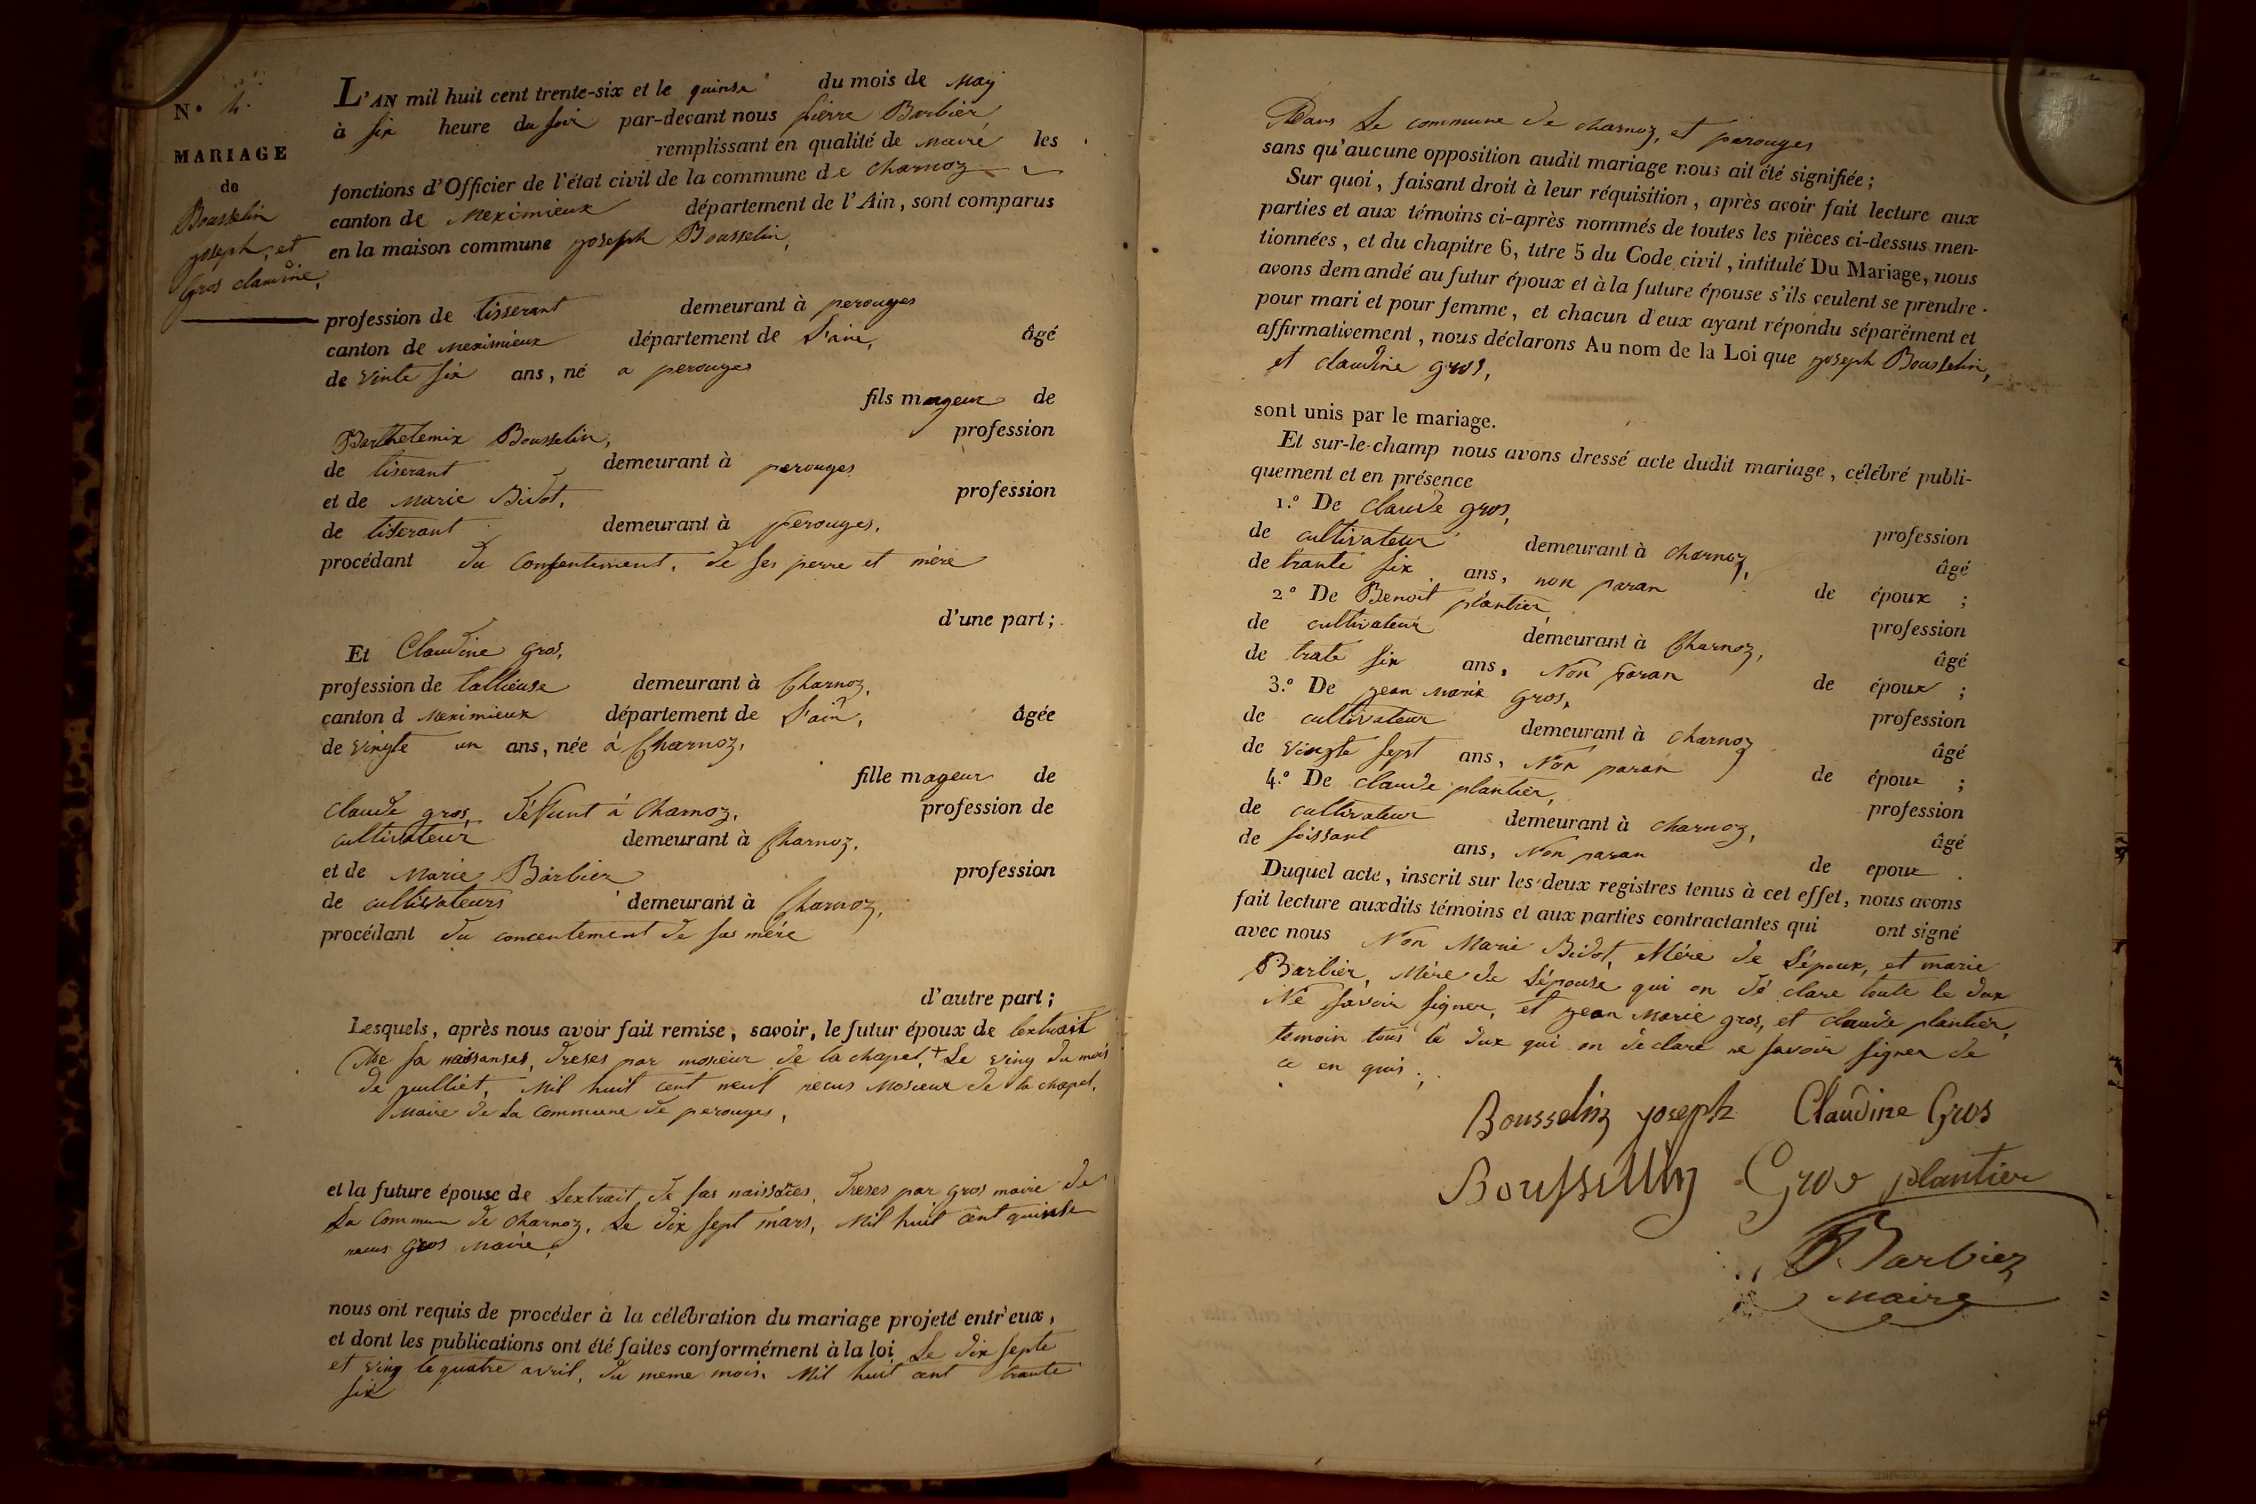 N.° 4.
MARIAGE
de
Bousselin
joseph, et
Gros claudine,
L'AN mil huit cent trente-six et le quinse du mois de May
à six heure du soir par-devant nous pierre Barbier
remplissant en qualité de maire les
fonctions d'Officier de l'état civil de la commune de charnoz
canton de Meximieux département de l'Ain, sont comparus
en la maison commune joseph Bousselin,
profession de tisserant demeurant à perouges
canton de meximieux département de L'ain, âgé
de vinte six ans, né a perouges
fils mageur de
Barthelemix Bousselin, profession
de tiserant demeurant à perouges
et de Marie Bidot, profession
de tiserant demeurant à perouges,
procédant du consentement, de ses perre et mére
d'une part;
Et Claudine gros,
profession de tallieuse demeurant à Charnoz,
canton d Meximieux département de L'ain, âgée
de vingte un ans, née à Charnoz,
fille mageur de
claude gros, défunt à Charnoz, profession de
cultivateur demeurant à Charnoz,
et de Marie Barbier profession
de cultivateurs demeurant à Charnoz,
procédant du concentement de sas mére
d'autre part;
Lesquels, après nous avoir fait remise, savoir, le futur époux de lextrait
De sa naissanses, dreses par mosieur de la chapel, + Le ving du mois
de juilliet, Mil huit cent neuf recus Mosieur de la chapel,
Maire de La Commune de perouges,
et la future épouse de Lextrait de sas naissances, dreses par gros maire de
La Commun de charnoz, Le dix sept mars, Mil huit cent quinse
recus gros Maire,
nous ont requis de procéder à la célébration du mariage projeté entr'eux,
et dont les publications ont été faites conformément à la loi Le dix septe
et ving te quatre avril, du meme mois, Mil huit cent trante
six
Dans Le commune de charnoz, et perouges
sans qu'aucune opposition audit mariage nous ait été signifiée;
Sur quoi, faisant droit à leur réquisition, après avoir fait lecture aux
parties et aux témoins ci-après nommés de toutes les pièces ci-dessus men-
tionnées, et du chapitre 6, titre 5 du Code civil, intitulé Du Mariage, nous
avons demandé au futur époux et à la future épouse s'ils veulent se prendre
pour mari et pour femme, et chacun d'eux ayant répondu séparément et
affirmativement, nous déclarons Au nom de la Loi que joseph Bousselin,
et claudine gros,
sont unis par le mariage.
Et sur-le-champ nous avons dressé acte dudit mariage, célébré publi-
quement et en présence
1.° De claude gros, profession
de cultivateur demeurant à charnoz, âgé
de trante six ans, non paran de époux ;
2° De Benoit plantier, profession
de cultivateur demeurant à Charnoz, âgé
de trate six ans, Non paran de époux ;
3.° De jean Marie gros, profession
de cultivateur demeurant à charnoz âgé
de vingte sept ans, Non paran de époux ;
4.° De claude plantier, profession
de cultivateur demeurant à charnoz, âgé
de soissant ans, Non paran de epoux .
Duquel acte, inscrit sur les deux registres tenus à cet effet, nous avons
fait lecture auxdits témoins et aux parties contractantes qui ont signé
avec nous Non Marie Bidot, Mére de L'époux, et marie
Barbier, Mére de L'épouse qui on dé clare toute le dux
Né savoir signer, et jean Marie gros, et claude plantier,
temoin tous le dux qui on déclare ne savoir signer de
ce en quis.
Bousselin joseph Claudine Gros
Bousselin Gros plantier
Barbier
maire